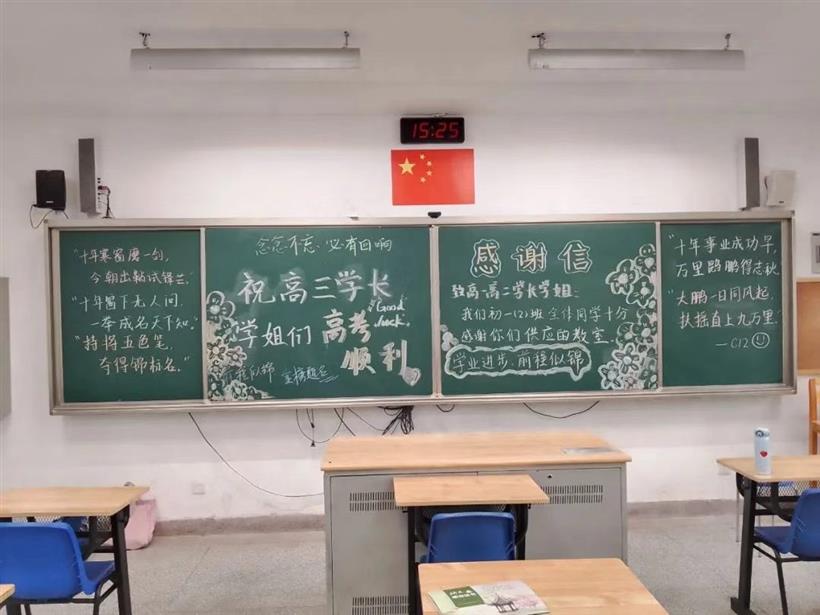 15:25
"十年寒窗磨一剑,
今朝出鞘试锋芒."
"十年窗下无人问,
一举成名天下知."
"持将五色笔,
夺得锦标名."
念念不忘 必有回响
祝高三学长
学姐们 高考
Good
luck.
顺利
前程似锦 金榜题名
感谢信
致高一高二学长学姐:
我们初一(2)班全体同学十分
感谢你们供应的教室.
学业进步,前程似锦
"十年事业成功早,
万里鹍鹏得志秋."
"大鹏一日同风起,
扶摇直上九万里."
—C12